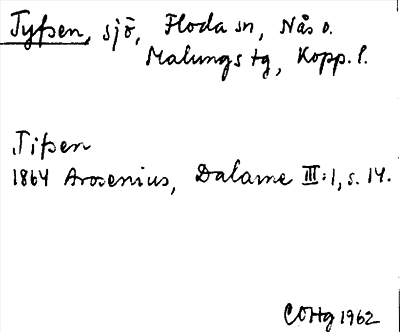 Tyssen, sjö, Floda sn, Nås o.
Malungs tg, Kopp. l.
Tissen
1864 Arosenius, Dalarne III:1, s. 14.
COHg 1962